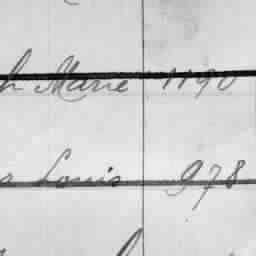 h Marie 1190
s Louis 978